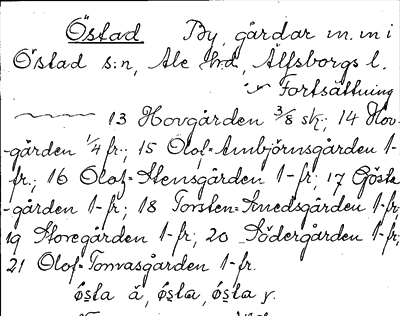 Östad By, gårdar m. m i
Östad s:n, Ale h:d, Älfsborgs l.
Fortsättning
13 Hovgården 3/8 sk; 14 Hov-
-gården 1/4 fr.; 15 Olof-Ambjörnsgården 1-
fr.; 16 Olof-Stensgården 1-fr; 17 Gösta
-gården 1-fr; 18 Torsten-Knedsgården 1-fr;
19 Storegården 1-fr; 20 Södergården 1-fr;
21 Olof-Tomasgården 1-fr.
ǿsta å, ǿsta, ǿsta y.